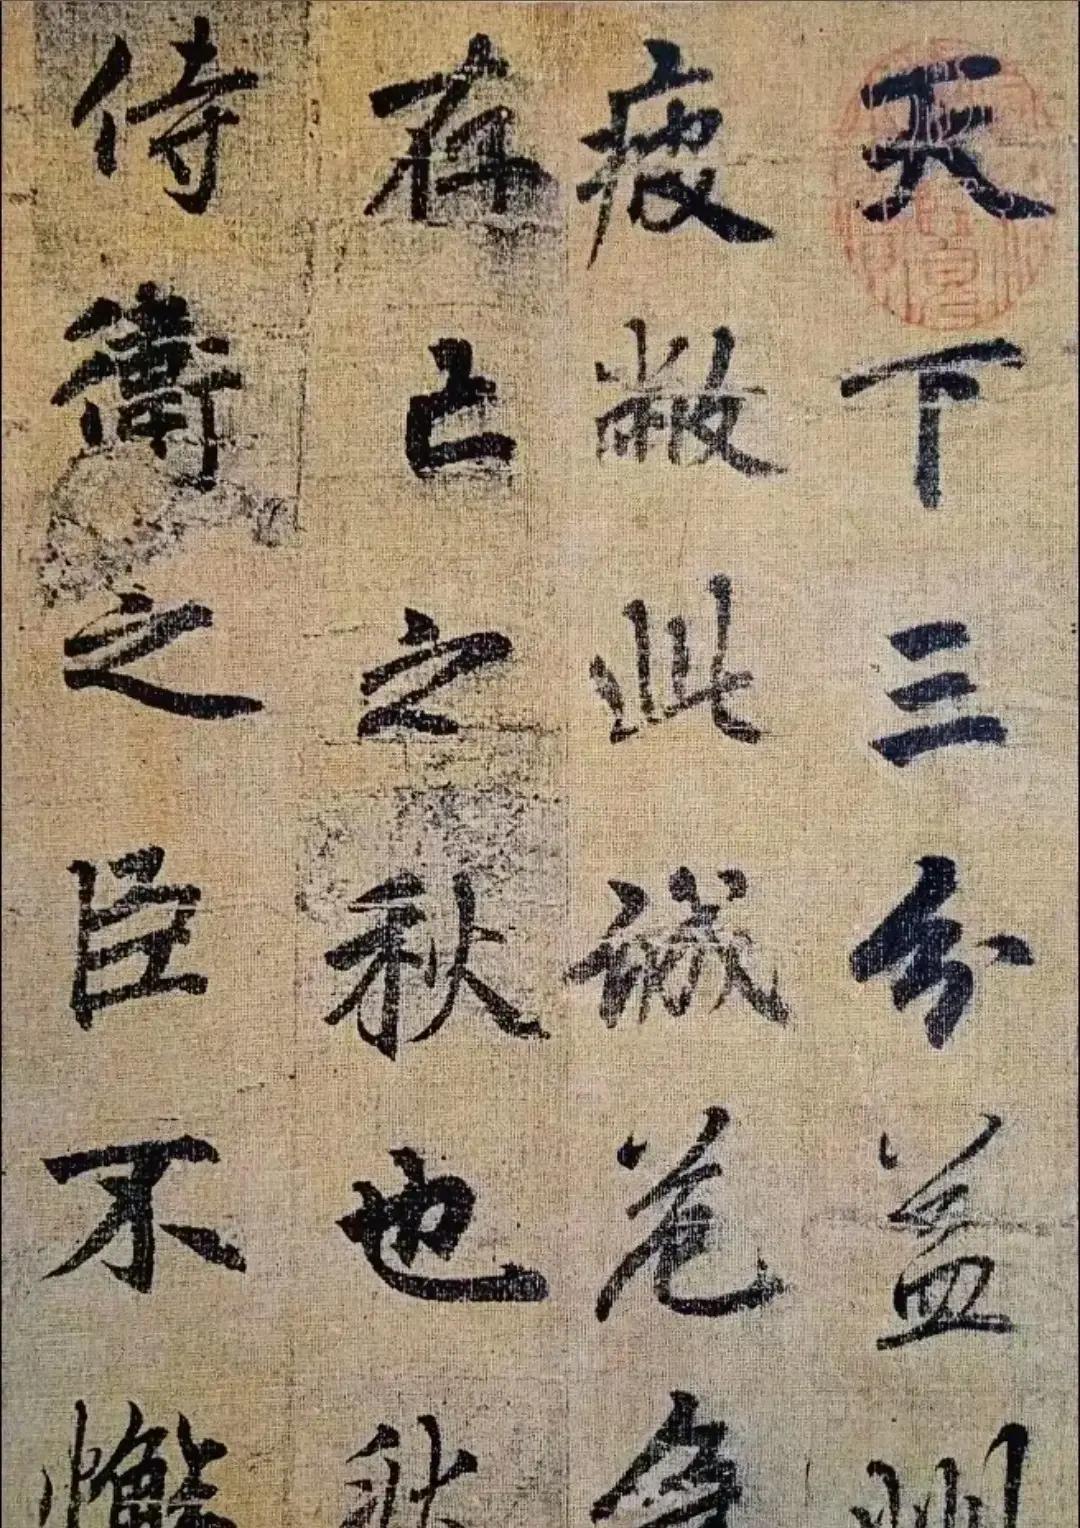 天下三分益州
疲敝此誠危急
存亡之秋也
侍衛之臣不懈